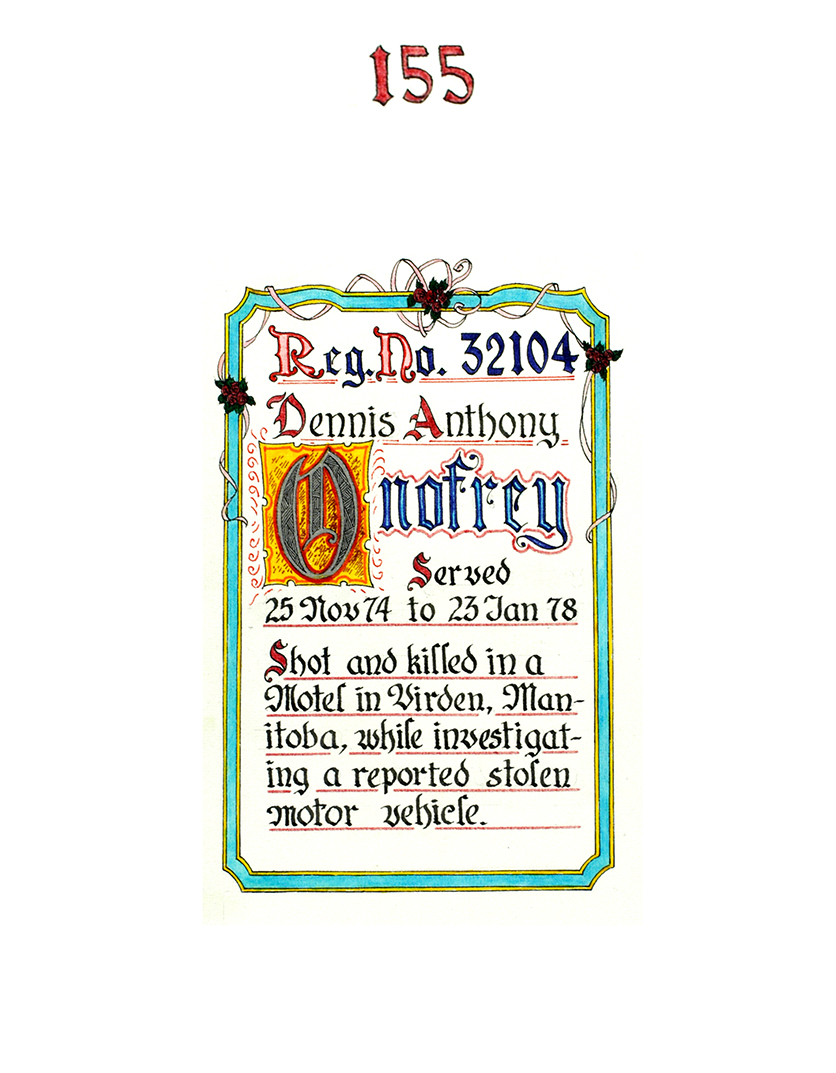 155
Reg. No. 32104
Dennis Anthony
Onofrey
Served
25 Nov 74 to 23 Jan 78
Shot and killed in a
Motel in Virden, Man-
itoba, while investigat-
ing a reported stolen
motor vehicle.